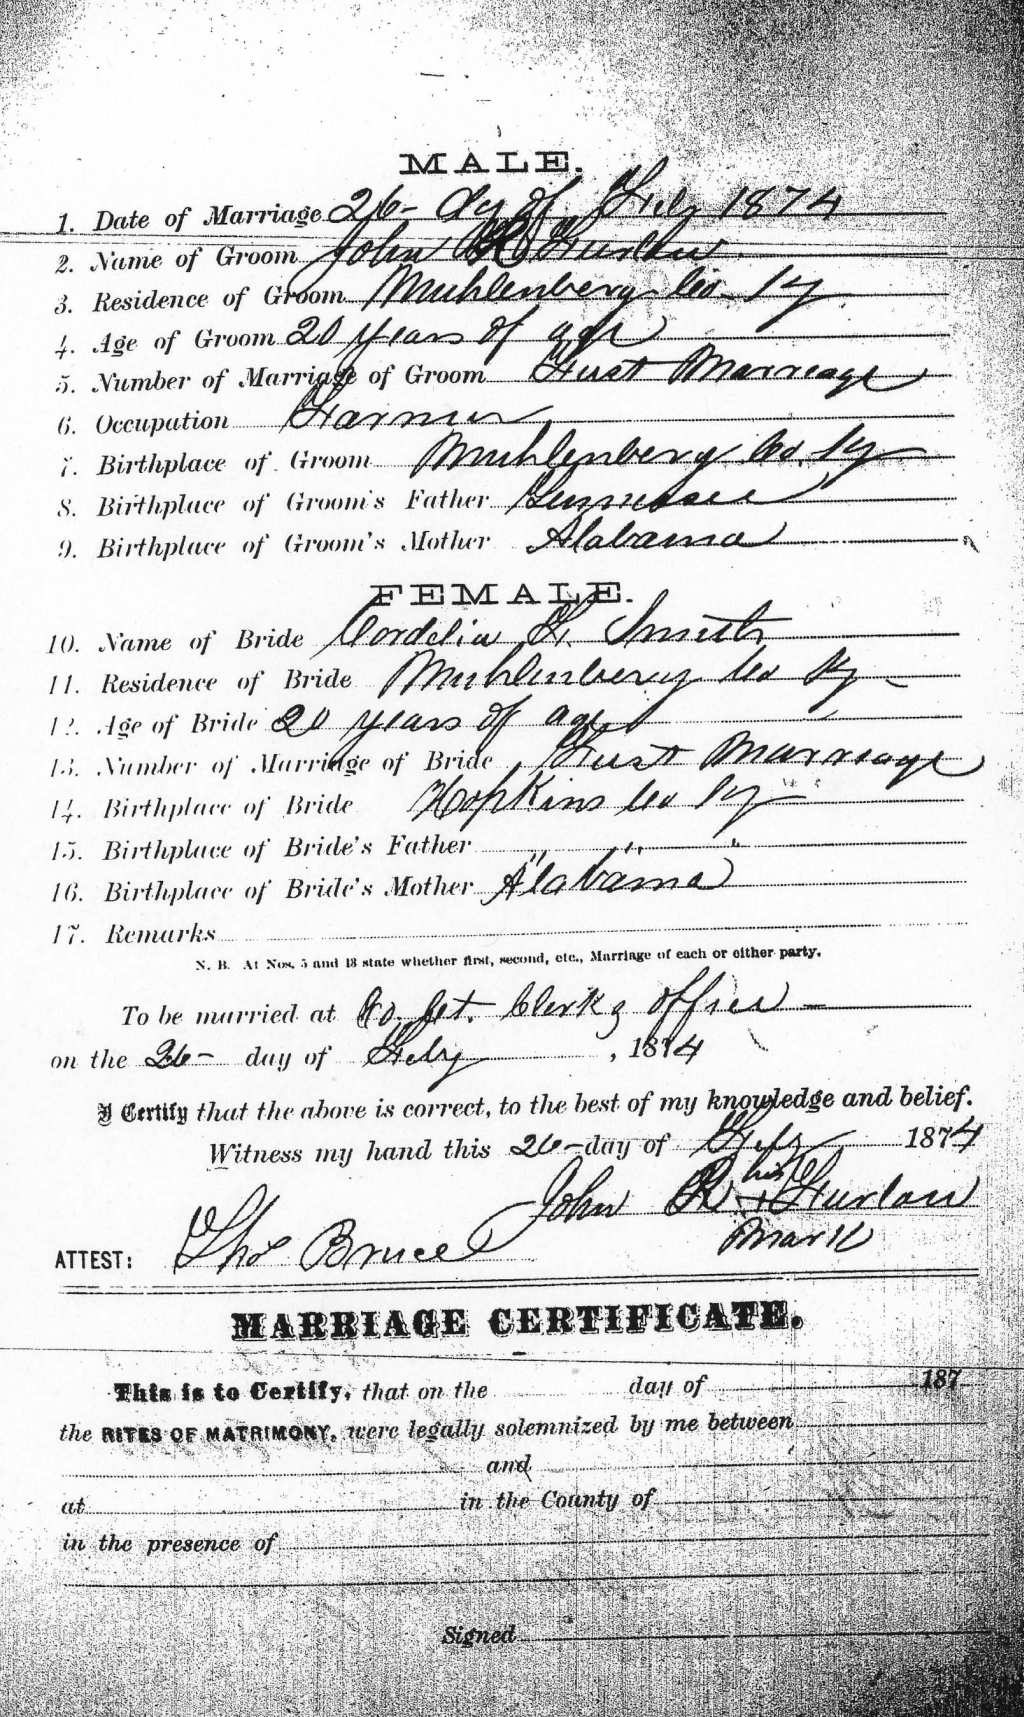 MALE.
1. Date of Marriage 26- dy of Feby 1874
2. Name of Groom John R Furlow
3. Residence of Groom Muhlenberg Co. Ky
4. Age of Groom 20 years of age
5. Number of Marriage of Groom First Marreage
6. Occupation Farmer
7. Birthplace of Groom Muhlenberg Co. Ky
8. Birthplace of Groom's Father Tennessee
9. Birthplace of Groom's Mother Alabama
FEMALE.
10. Name of Bride Cordelia F. Smith
11. Residence of Bride Muhlenberg Co Ky -
12. Age of Bride 20 years of age
13. Number of Marriage of Bride First Marreage
14. Birthplace of Bride Hopkins Co Ky
15. Birthplace of Bride's Father " " "
16. Birthplace of Bride's Mother Alabama
17. Remarks
N. B. At Nos. 5 and 13 state whether first, second, etc., Marriage of each or either party.
To be married at Co. Ct. Clerks office -
on the 26- day of Feby, 1874
I Certify that the above is correct, to the best of my knowledge and belief.
Witness my hand this 26- day of Feby 1874
his
John R + Furlow
mark
ATTEST: Tho Bruce
MARRIAGE CERTIFICATE.
This is to Certify, that on the day of 187
the RITES OF MATRIMONY, were legally solemnized by me between
and
at in the County of
in the presence of
Signed